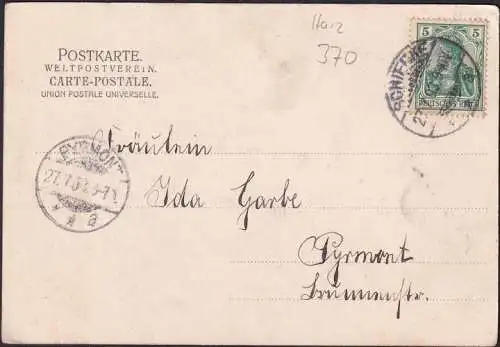 Harz
370
POSTKARTE.
WELTPOSTVEREIN.
CARTE-POSTALE.
UNION POSTALE UNIVERSELLE.
5 5
DEUTSCHES REICH
SCHIERKE
27
PYRMONT
27.7.
a
Fräulein
Ida Garbe
Pyrmont
Brunnenstr.